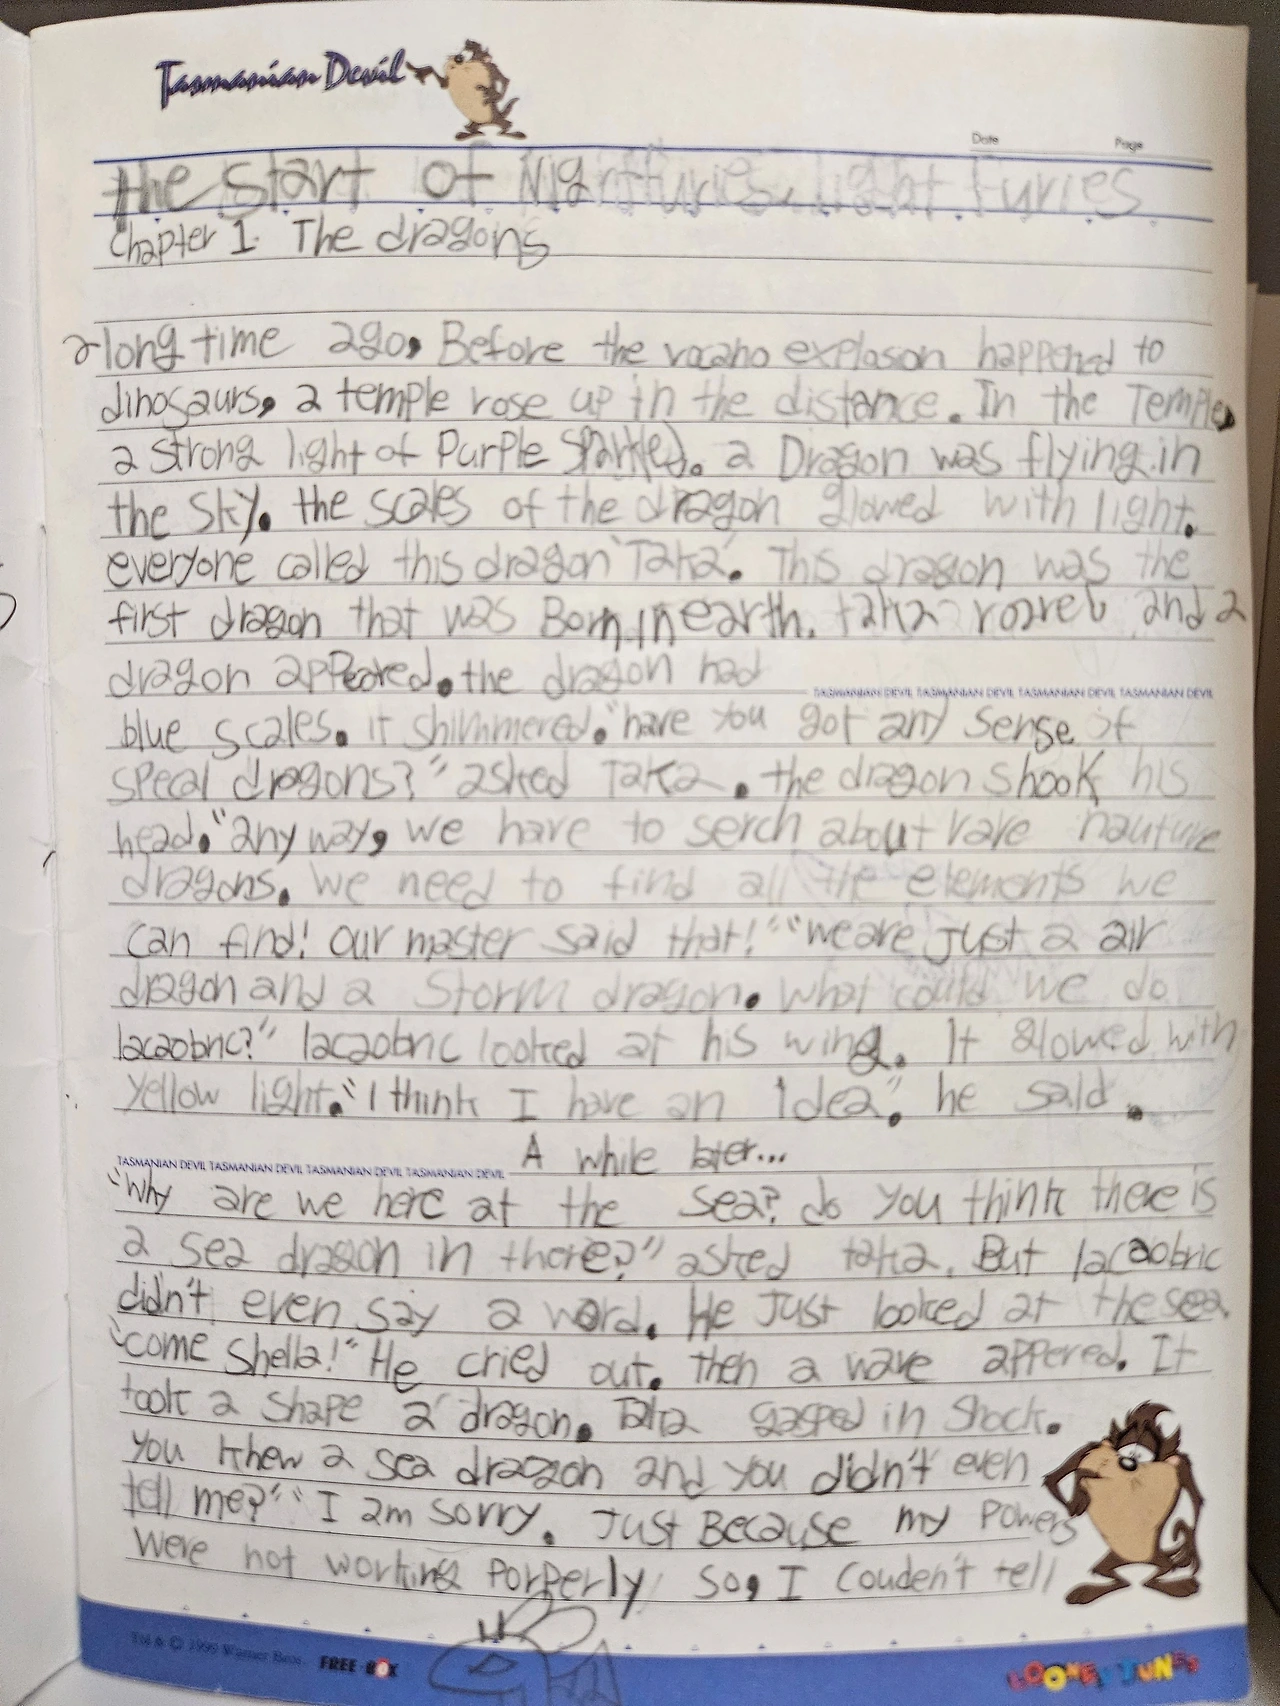 Tasmanian Devil
Date Page
the start of Nightfuries, light furies
Chapter 1. The dragons
a long time ago, Before the vocano explosion happened to
dinosaurs, a temple rose up in the distance. In the Temple,
a strong light of Purple Sparkled. a Dragon was flying in
the Sky. the scales of the dragon glowed with light.
everyone called this dragon 'Taka'. This dragon was the
first dragon that was Born in earth. taka roared and a
dragon appeared. the dragon had
TASMANIAN DEVIL TASMANIAN DEVIL TASMANIAN DEVIL TASMANIAN DEVIL
blue scales. it shimmered. "have you got any sense of
specal dragons?" asked Taka. the dragon shook his
head. "any way, we have to serch about rare nauture
dragons. We need to find all the elements we
can find! Our master said that!" "we are Just a air
dragon and a Storm dragon. What could we do
lacaobric?" lacaobric looked at his wing. It glowed with
yellow light. "I think I have an idea", he said.
A while later...
TASMANIAN DEVIL TASMANIAN DEVIL TASMANIAN DEVIL TASMANIAN DEVIL
"Why are we here at the sea? do you think there is
a sea dragon in there?" asked taka. But lacaobric
didn't even say a word. He Just looked at the sea.
"come Shella!" He cried out. Then a wave appered. It
took a shape a dragon. Taka gasped in shock.
you knew a sea dragon and you didn't even
tell me?" "I am sorry. Just Because my powers
were not working porperly so, I couden't tell
TM & © 1999 Warner Bros. FREE BOX
LOONEY TUNES